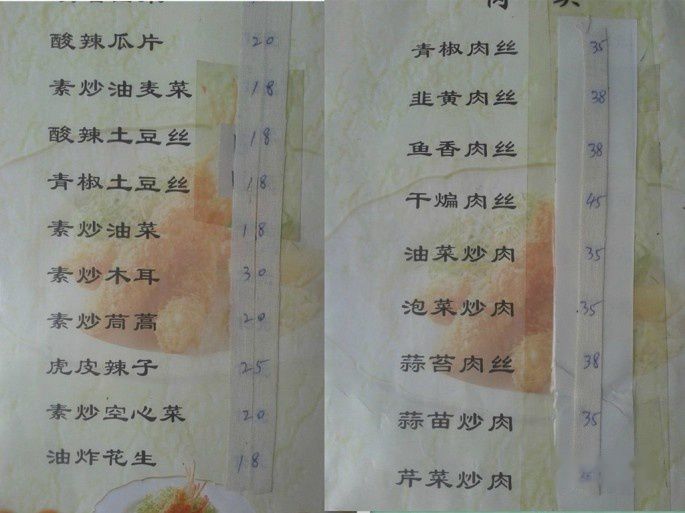 酸辣瓜片 20
素炒油麦菜 18
酸辣土豆丝 18
青椒土豆丝 18
素炒油菜 18
素炒木耳 30
素炒茼蒿 20
虎皮辣子 25
素炒空心菜 20
油炸花生 18
青椒肉丝 35
韭黄肉丝 38
鱼香肉丝 38
干煸肉丝 45
油菜炒肉 35
泡菜炒肉 35
蒜苔肉丝 38
蒜苗炒肉 35
芹菜炒肉